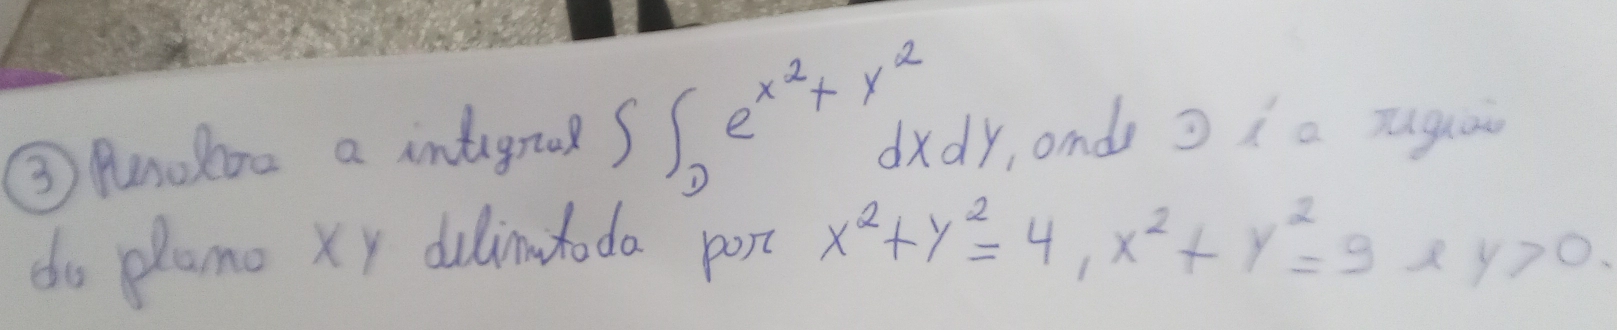 ③ Resolva a integral ∫∫_D e^{x^2 + y^2} dxdy, onde D é a região
do plano xy delimitada por x^2 + y^2 = 4, x^2 + y^2 = 9 e y > 0.